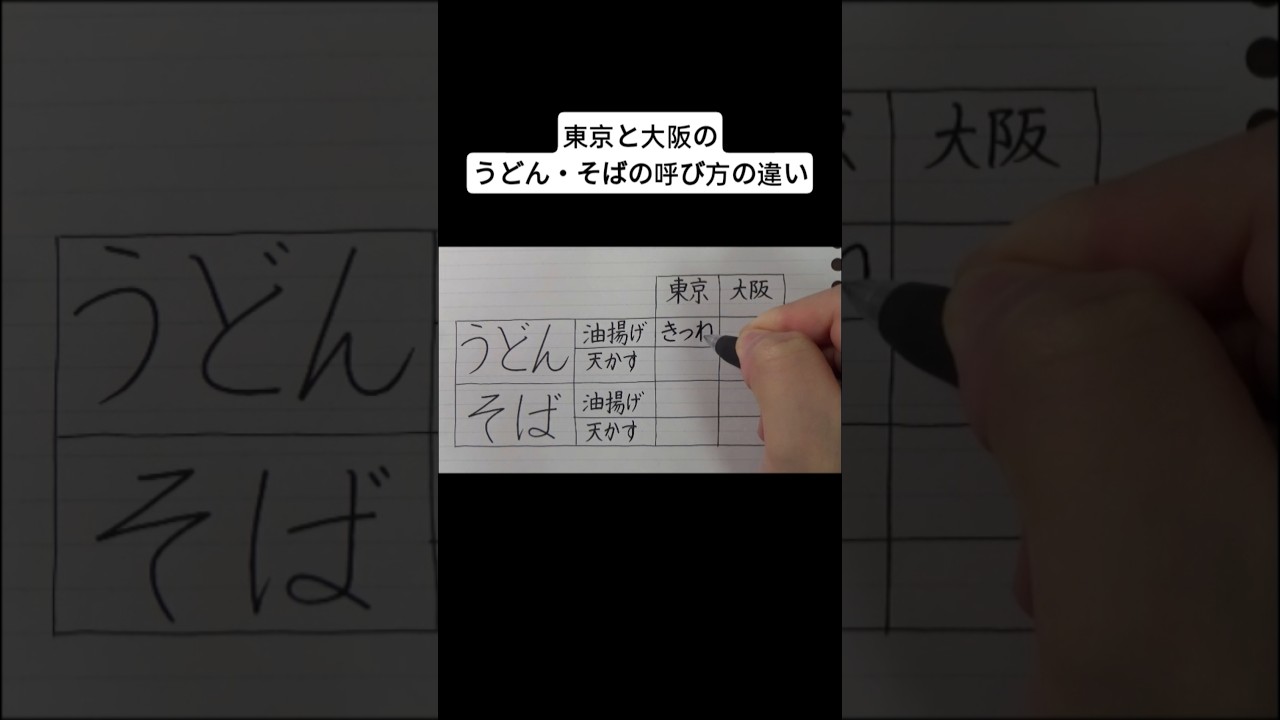 東京と大阪の
うどん・そばの呼び方の違い
東京 大阪
うどん 油揚げ きつね
天かす
そば 油揚げ
天かす
大阪
うどん
そば